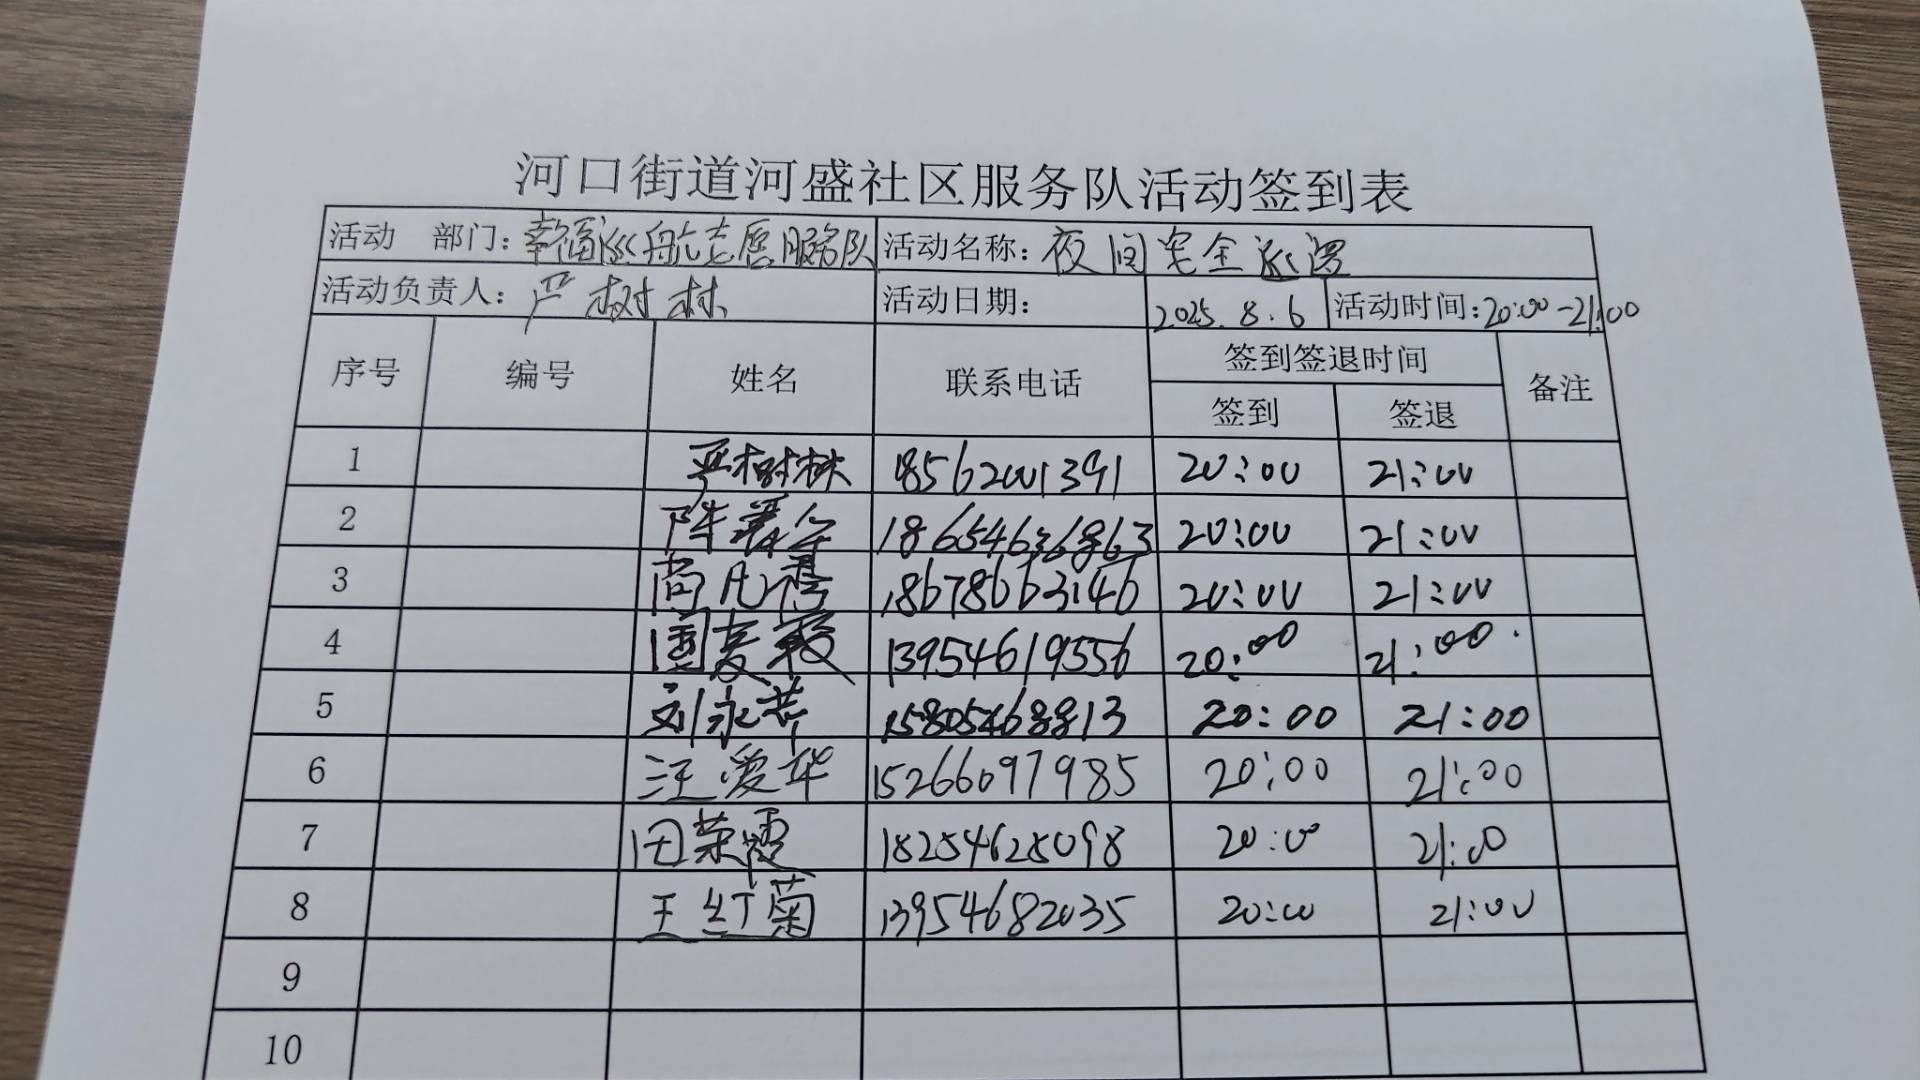 河口街道河盛社区服务队活动签到表
活动 部门：幸福巡航志愿服务队 活动名称：夜间安全巡逻
活动负责人：严树林 活动日期： 2025.8.6 活动时间：20:00-21:00
序号 编号 姓名 联系电话 签到签退时间 备注
签到 签退
1 严树林 18562001391 20:00 21:00
2 18654636863 20:00 21:00
3 尚凡 18678663146 20:00 21:00
4 13954619556 20:00 21:00
5 刘永 15805468813 20:00 21:00
6 汪爱华 15266097985 20:00 21:00
7 田荣霞 18254625098 20:00 21:00
8 王红菊 13954682035 20:00 21:00
9
10